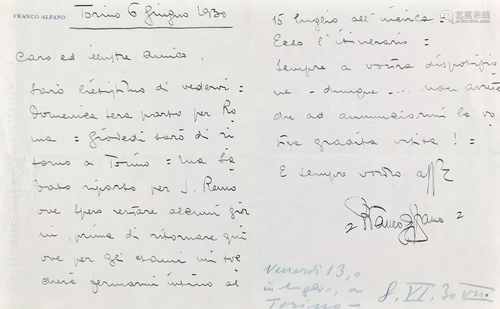 FRANCO ALFANO
Torino 6 Giugno 1930
Caro ed illustre amico,
Sarò lietissimo di vedervi =
Domenica sera parto per Ro
ma = Giovedì sarò di ri
torno a Torino = Ma Sa
bato riparto per S. Remo
ove spero restare alcuni gior
ni, prima di ritornare qui
ove per gli esami mi toc
cherà fermarmi intorno al
15 luglio all'incirca =
Ecco l'itinerario =
Sempre a vostra disposizio
ne - dunque - ... non avrete
che ad annunciarmi la vo
stra gradita visita ! =
E sempre vostro aff
Franco Alfano
Venerdì 13, o
in luglio, a
Torino -
8. VI. 30 VIII